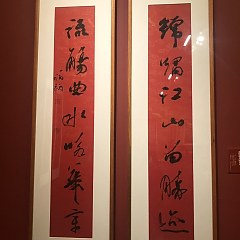 錦繡江山留勝迹
流觴曲水咏華章